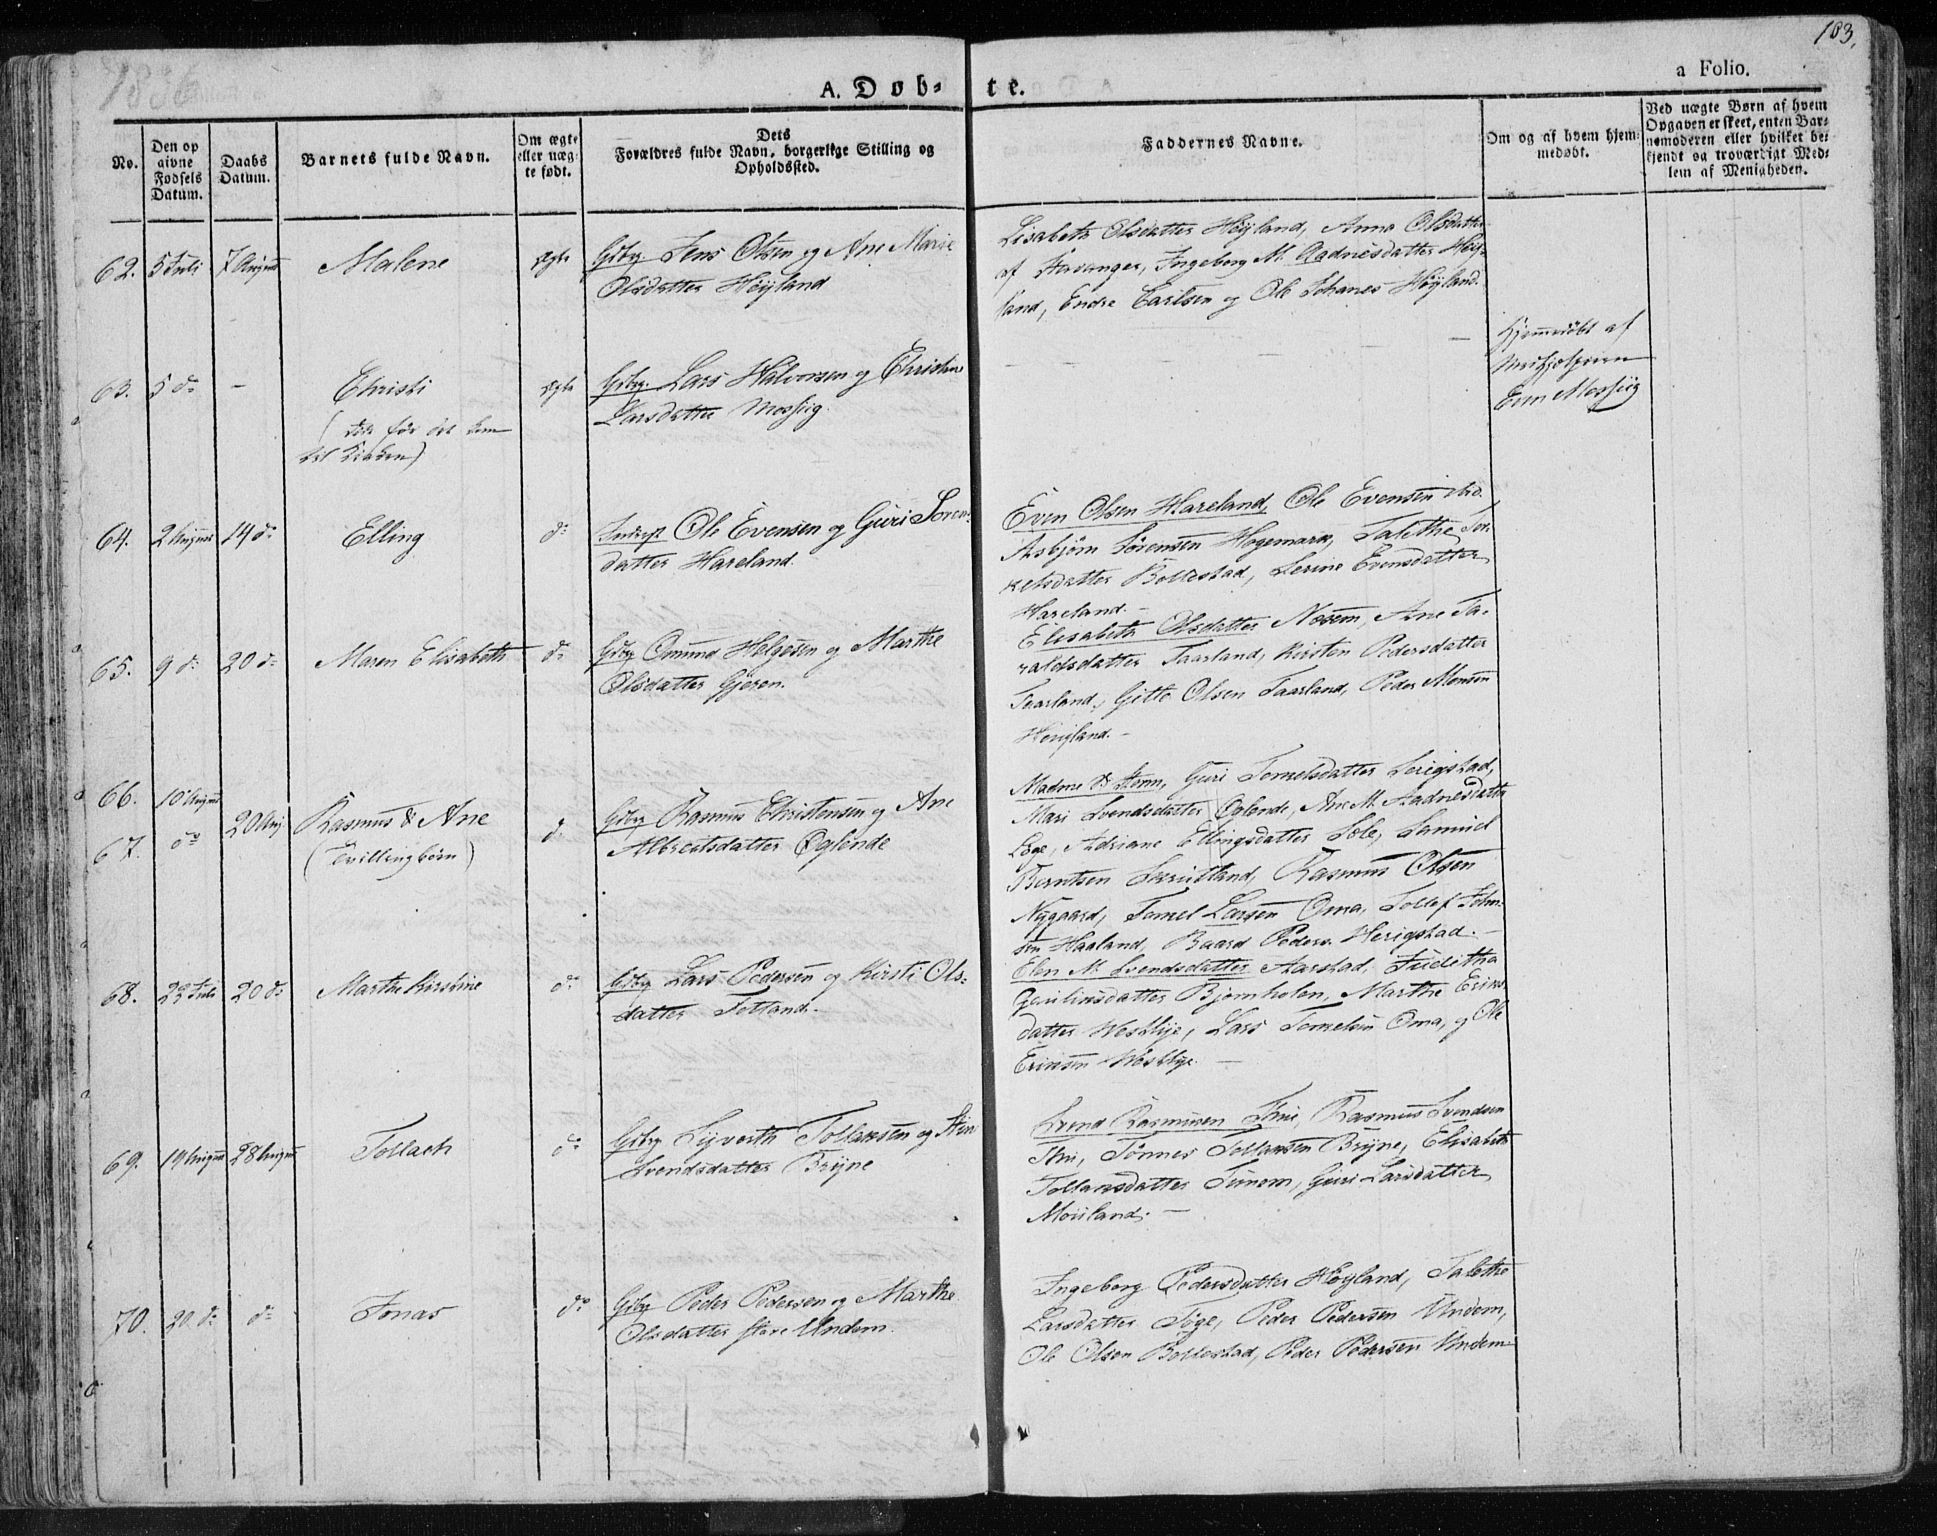 1836
103.
A. Døb-
te.
a Folio.
No.
Den op
givne
Fødsels
Datum.
Daabs
Datum.
Barnets fulde Navn.
Om ægte
eller uæg-
te født.
Dets
Forældres fulde Navn, borgerlige Stilling og
Opholdssted.
Faddernes Navne.
Om og af hvem hjem-
medøbt.
Ved uægte Børn af hvem
Opgaven er skeet, enten Bar-
nemoderen eller hvilket be-
kjendt og troværdigt Med-
lem af Menigheden.
62. 5 Juli 7 August Malene ægte Gbrg Jens Olsen og Ane Marie
Olsdatter Høyland
Lisabeth Olsdatter Høyland, Anna Olsdatter
af Stavanger, Ingeborg M. Aadnesdatter Høy-
land, Endre Carlsen og Ole Johanes Høyland.
63. 5 d° - Christi ægte Gbrg. Lars Halvorsen og Christine
Larsdatter Mossiig.
(døde før det kom
til Kirken)
Hjemmedøbt af
Mossiig
64. 2 August 14 d° Elling d° Inderst Ole Evensen og Guri Soren-
datter Hareland.
Even Olsen Hareland, Ole Evensen ibid.
Asbjørn Sørensen Hogemark, Talethe Tor-
kelsdatter Bollestad, Serine Evensdatter
Hareland.
65. 9 d° 20 d° Maren Elisabeth d° Gbrg Omund Helgesen og Marthe
Olsdatter Gjeren.
Elisabeth Olsdatter Nøsem, Ane Ta-
raldsdatter Taarland, Kirsten Pedersdatter
Taarland, Gitle Olsen Taarland, Peder Monsen
Høugland.
66. 10 August
67. d°
20 Aug. Rasmus & Ane
(Tvillingbørn)
d° Gbrg Rasmus Christensen og Ane
Albretsdatter Øglende
Madme Guri Tormelsdatter
Mari Svendsdatter Øglende, Ane M. Aadnesdatter
Løge, Adriane Ellingsdatter Sole, Samuel
Berntsen Skrudland, Rasmus Olsen
Nygaard, Tomel Larsen Oma, Tollef John-
sen Haaland, Baard Peders. Herigstad.
68. 29 Juli 20 d° Marthe Kirstine d° Gbrg Lars Pedersen og Kirsti Ols-
datter Totland.
Elen M. Svendsdatter Aarstad, Juditha
Gaulinsdatter Bjørnholen, Marthe Eriks-
datter Westlye, Lars Tormelsen Oma, og Ole
Eriksen Westlye.
69. 19 August 28 August Tollach d° Gbrg Syverth Tollaksen og
Svendsdatter Bryne
Svend Rasmusen Thu, Rasmus Svendsen
Thu, Tønnes Tollaksen Bryne, Elisabeth
Tollaksdatter Guri Larsdatter
Mouland.
70. 20 d° d° Jonas d° Gbrg Peder Pedersen og Marthe
Olsdatter store Undem.
Ingeborg Pedersdatter Høyland, Talethe
Larsdatter Tøge, Peder Pedersen Undem,
Ole Olsen Bollestad, Peder Pedersen Undem.